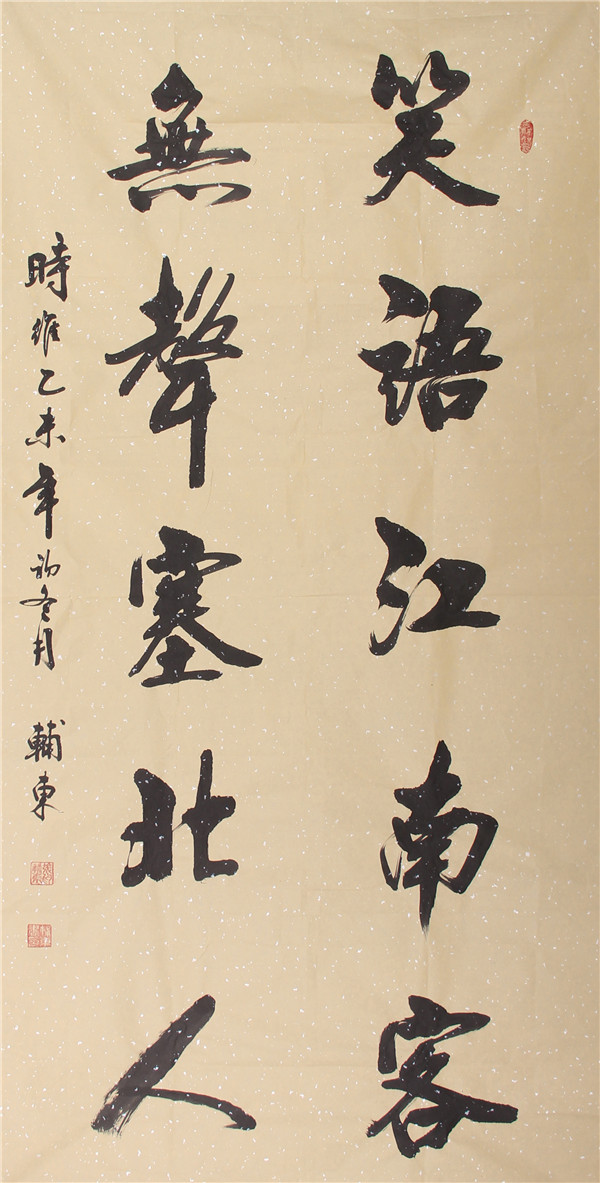 笑語江南客
無聲塞北人
時維乙未年初冬月 輔東